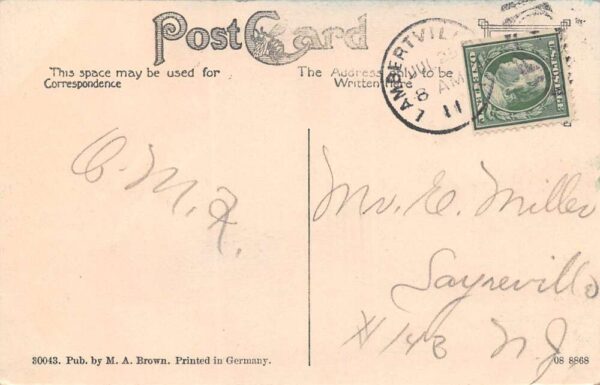 Post Card
This space may be used for
Correspondence
The Address only to be
Written Here
LAMBERTVILL
JUL
8 AM
11
U.S. POSTAGE
C. M. R.
Mr. E. Miller
Sayreville
# 143 N.J.
30043. Pub. by M. A. Brown. Printed in Germany.
08 8868